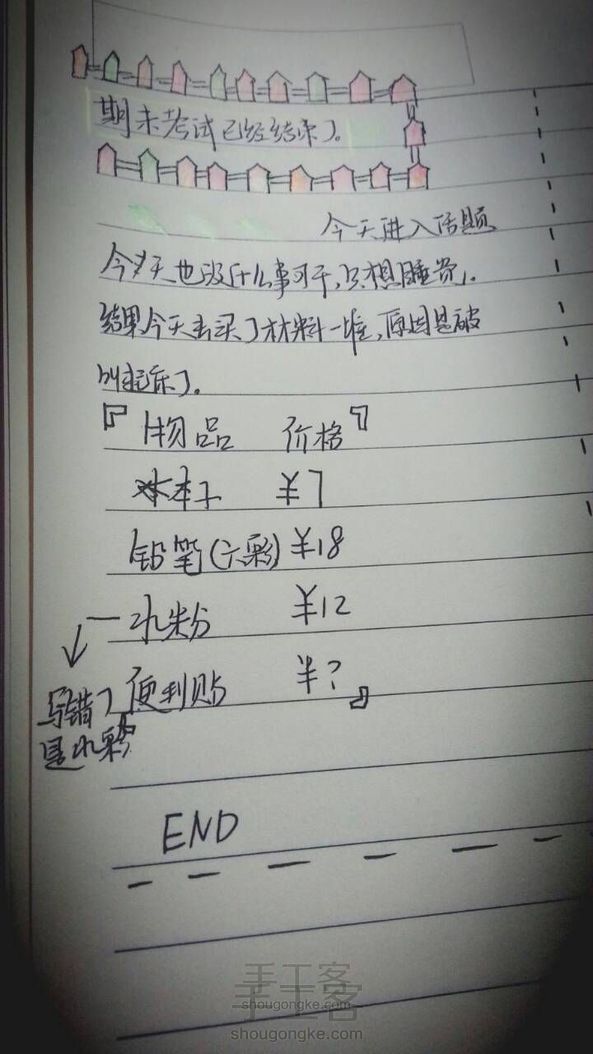 期末考试已经结束了。
今天进入话题
今天也没什么事可干,只想睡觉。
结果今天去买了材料一堆,原因是被
叫起床了。
『物品 价格』
本子 ¥7
铅笔(六彩) ¥18
水粉 ¥12
便利贴 ¥?』
写错了
是水彩
END
手工客
shougongke.com
手工客
shougongke.com